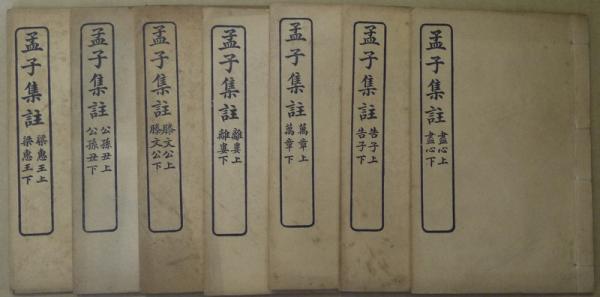 孟子集註
梁惠王上
梁惠王下
孟子集註
公孫丑上
公孫丑下
孟子集註
滕文公上
滕文公下
孟子集註
離婁上
離婁下
孟子集註
萬章上
萬章下
孟子集註
告子上
告子下
孟子集註
盡心上
盡心下